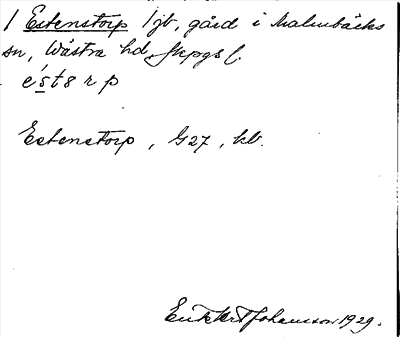 1 Estenstorp 1 jb, gård i Malmbäcks
sn, Västra hd, Jkpgs l.
e's t s r p
Estenstorp, G27, kb.
Johansson 1929.